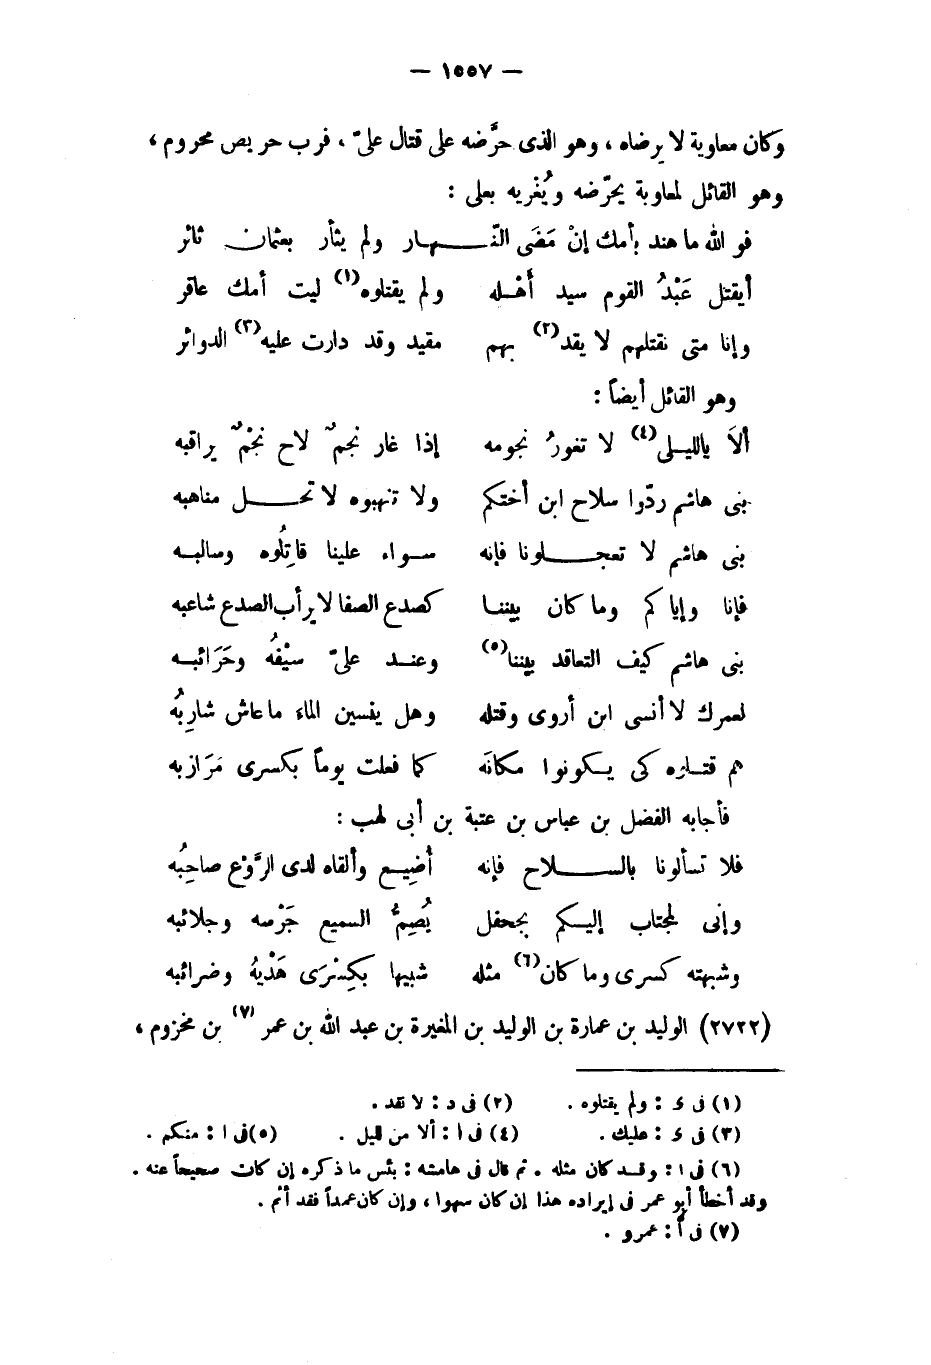 — ١٥٥٧ —
وكان معاوية لا يرضاه ، وهو الذى حرَّضه على قتال علىّ ، فرب حريص محروم ،
وهو القائل لمعاوية يحرّضه ويُغريه بعلى :
فو الله ما هند بأمك إنْ مَضَى النّهار ولم يثأر بعثمان ثائر
أيقتل عَبْدُ القوم سيد أَهْله ولم يقتلوه(١) ليت أمك عاقر
وإنا متى نقتلهم لا يقد(٢) بهم مقيد وقد دارت عليه(٣) الدوائر
وهو القائل أيضاً :
ألاَ ياليلى(٤) لا تغورُ نجومه إذا غار نجمٌ لاح نجْمٌ يراقبه
بنى هاشم ردّوا سلاح ابن أختكم ولا تنهبوه لا تحل مناهبه
بنى هاشم لا تعجلونا فإنه سواء علينا قاتِلُوه وسالبه
فإنا وإياكم وما كان بيننا كصدع الصفا لا يرأب الصدع شاعبه
بنى هاشم كيف التعاقد بيننا(٥) وعند علىّ سيْفُه وحَرَائبه
لعمرك لا أنسى ابن أروى وقتله وهل ينسين الماء ما عاش شارِبُه
هم قتلوه كى يكونوا مكانَه كما فعلت يوماً بكسرى مَرَازبه
فأجابه الفضل بن عباس بن عتبة بن أبى لهب :
فلا تسألونا بالسلاح فإنه أُضِيع وألقاه لدى الرَّوْع صاحِبُه
وإنى لمجتاب إليكم بجحفل يُصِمُّ السميع جَرْسه وجلائبه
وشبهته كسرى وما كان(٦) مثله شبيها بكِسْرَى هَدْيهُ وضرائبه
(٢٧٢٢) الوليد بن عمارة بن الوليد بن المغيرة بن عبد الله بن عمر (٧) بن مخزوم ،
(١) فى ى : ولم يقتلوه . (٢) فى د : لا نقد .
(٣) فى ى : عليك . (٤) فى ا : ألا من لليل . (٥) فى ا : منكم .
(٦) فى ا : وقد كان مثله . ثم قال فى هامشه : بئس ما ذكره إن كان صحيحاً عنه .
وقد أخطأ أبو عمر فى إيراده هذا إن كان سهوا ، وإن كان عمداً فقد أثم .
(٧) فى أ : عمرو .